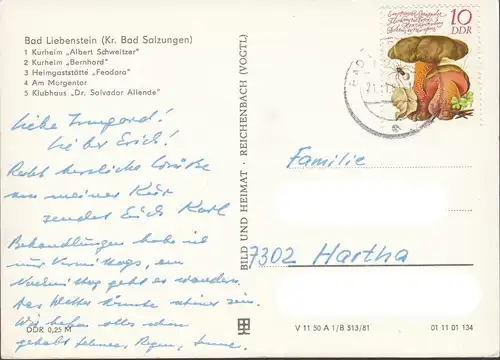 Bad Liebenstein (Kr. Bad Salzungen)
1 Kurheim „Albert Schweitzer"
2 Kurheim „Bernhard"
3 Heimgaststätte „Feodora"
4 Am Morgentor
5 Klubhaus „Dr. Salvador Allende"
10
DDR
Liebe Irmgard!
Lieber Erich!
Recht herzliche Grüße
aus meiner Kur
sendet Euch Karl
Behandlungen habe ich
nur Vormittags, am
Nachmittag geht es wandern.
Das Wetter könnte schöner sein.
Wir haben alles schon
gehabt Schnee, Regen, Sonne.
DDR 0,25 M
BILD UND HEIMAT · REICHENBACH (VOGTL)
Familie
7302 Hartha
V 11 50 A 1/B 513/81
01 11 01 134